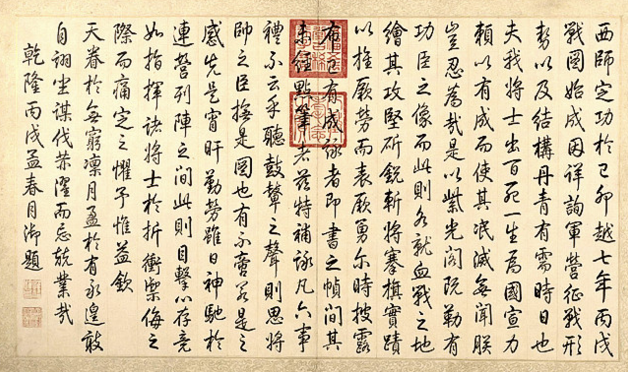 西師定功於己卯越七年丙戌
戰圖始成因詳詢軍營征戰形
勢以及結構丹青有需時日也
夫我將士出百死一生為國宣力
賴以有成而使其泯滅無聞朕
豈忍為哉是以紫光閣既勒有
功臣之像而此則各就血戰之地
繪其攻堅斫銳斬將搴旗實蹟
以旌厥勞而表厥勇爾時披露
布已有成詠者即書之幀間其
未經點筆者茲特補詠凡六事
禮不云乎聽鼓鼙之聲則思將
帥之臣撫是圖也有不啻若是之
感先是宵旰勤勞雖日神馳於
連營列陣之間此則目擊心存竟
如指揮諸將士於折衝禦侮之
際而痛定之懼予惟益欽
天眷於無窮凜月盈於有永遑敢
自詡坐謀伐恭濯而忘兢業哉
乾隆丙戌孟春月御題